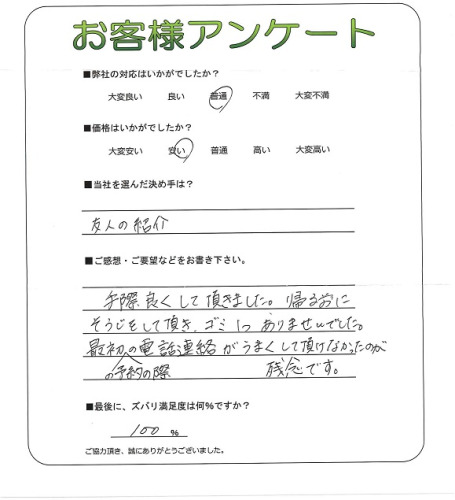 お客様アンケート
■弊社の対応はいかがでしたか？
大変良い 良い 普通 不満 大変不満
■価格はいかがでしたか？
大変安い 安い 普通 高い 大変高い
■当社を選んだ決め手は？
友人の紹介
■ご感想・ご要望などをお書き下さい。
手際良くして頂きました。帰る前に
そうじをして頂き、ゴミ1つありませんでした。
最初の電話連絡がうまくして頂けなかったのが
の予約の際 残念です。
■最後に、ズバリ満足度は何％ですか？
100 ％
ご協力頂き、誠にありがとうございました。